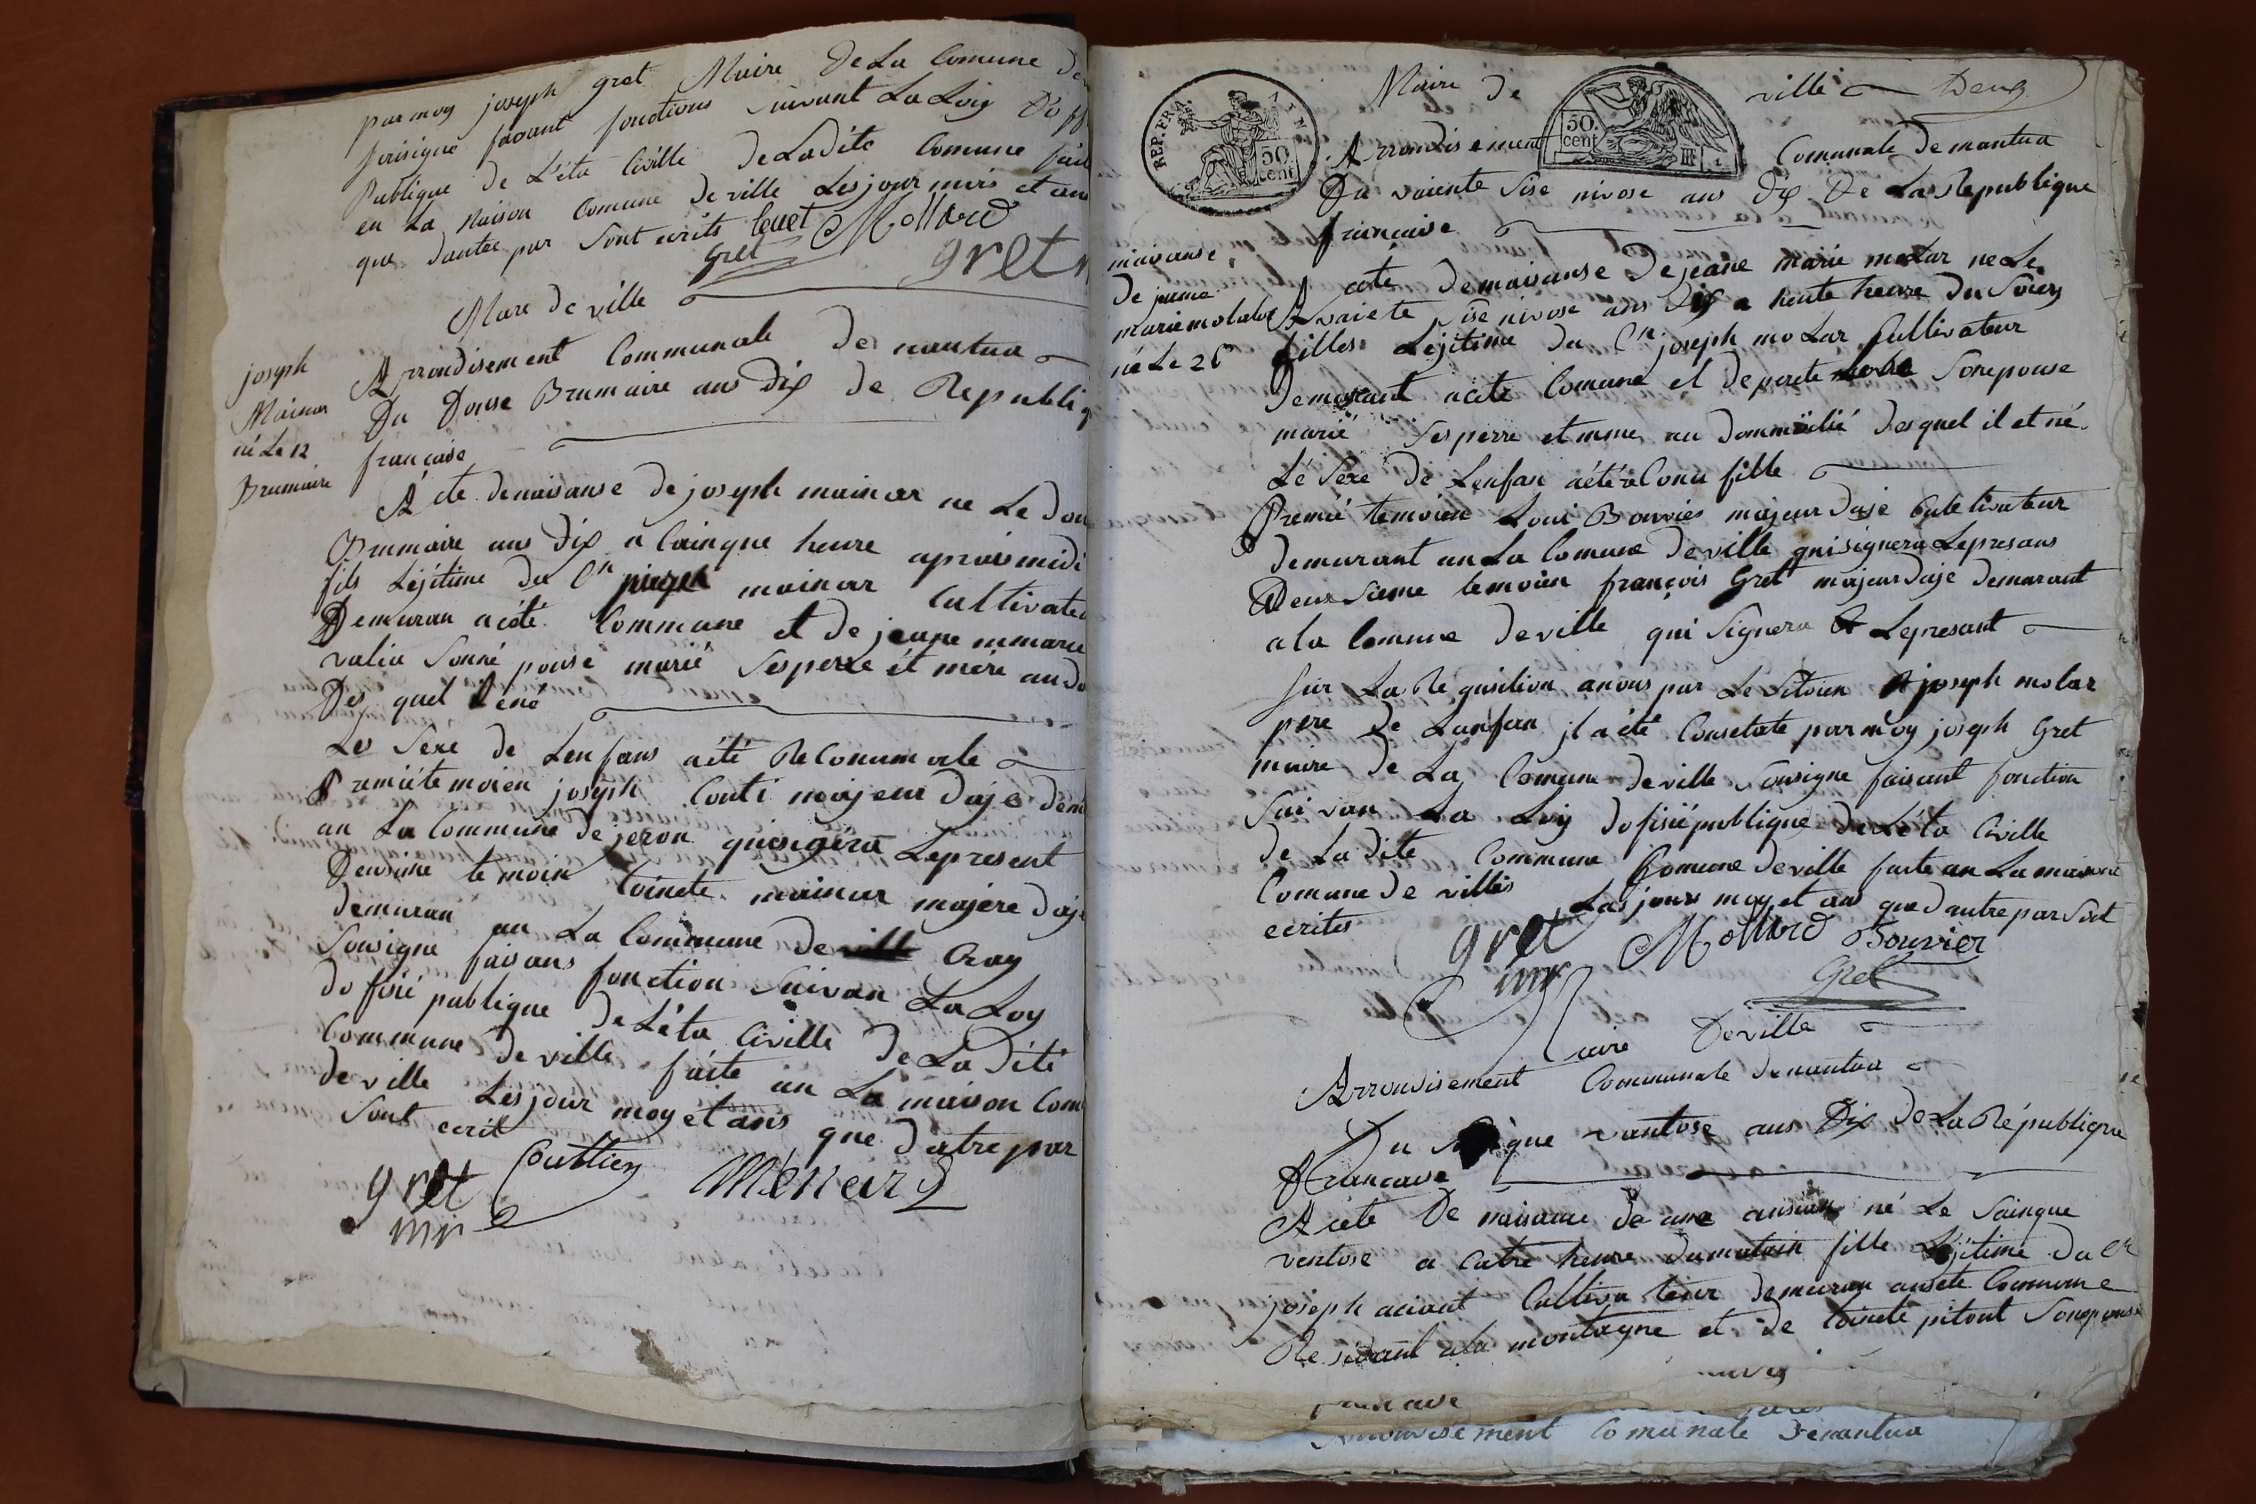 par moy joseph gret Maire De La Comune de
sousigné faisant fonctions suivant La Loiy D'off
Publique de L'éta Civille De Ladite Comune faite
en La Maison Comune de ville Les jour mois et ans
que dautre par sont ecrits levet Mollard
Gret gret
Mare de ville
joseph
Mainar
né Le 12
Brumaire
Arrondisement Communale de nantua
Du Douse Brumaire ans dix de Republiq
française
Acte denaisanse de joseph mainar ne Le dou
Brumaire ans dix a Cainque heure apraismidi
fils Lejitime du Cn mainar Cultivateu
Demuran acété Commune et de jeane mmarie
valia sonné pouse marié sesperre et mere audo
Des quel né
Les sexe de Lenfans aété Reconumale
Premiétemoien joseph Conti majeur daje dem
an La Commune de jeron quisignera Lepresent
Deusime temoin toinete mainar majere daje
demuran an La Commune de ville Cray
sousigne faisans fonction suivan La Loy
dofisié publique De L'éta Civille De La Dité
Commune de ville faite an La maison Com
de ville Les jour moy et ans que D'atre par
sont ecrit
gret Couttiey Menard
mr
REP. FRA.
50
cent
50.
cent
Maire De ville Deug
Arrondisement Comunale De mantua
Du vaiente sise nivose ans dix De La Republique
française
maisanse
De jeane
marie molalar
né Le 26
Acté demaisanse De jeane marie molar né Le
vaiete sise nivose ans dix a heute heure Du Soiey
filles Lejitime du Cn joseph moLar Cultivateur
Demorant acite Comune et deperete Sonepouse
marié sesperre et mme au dommisilié desquel il et né.
Lé sexe de Lenfan aété Conu fille
Premié temoien Loui Bouvier majeur daje Cultivateur
demurant an La Comune de ville quisignera Lepresans
Deus sieme temoien françois Gret majeur daje demurant
a la Comune de ville qui signera Lepresant
sur La Requisition anous par Le Sitoien joseph molar
pere De Lanfan jl a été Consetate par moy joseph Gret
maire de La Comune de ville sousigne faisant fonction
sui van La Loy dofisié publique de Léta Civille
de La dite Commune Comune de ville faite an La maison
Comune de villes Les jours moy et ans que dautre par sont
ecrites
gret Mollard Bouvier
mr Gret
Maire De ville
Arrondisement Communale de nantua
Du que vantose ans Dix de La République
Francaise
Acéte De naisance de ane ansian né Le Sainque
ventose a Catre heure dumatein fille Lejitime Du Cn
joseph aciant Cultiva teur demuran ansete Commune
Residant a La montagne et De toinete pitout Sonepouse
Arrondisement Comunale Denantua